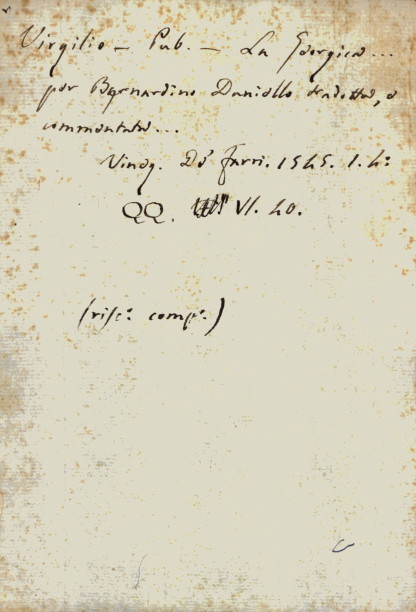 Virgilio — Pub. — La Georgica ...
per Bernardino Daniello tradotta, e
commentata ...
Vineg. De' Farri. 1545. 1. 4º
QQ. VI. 40.
(risc.º comp.º)